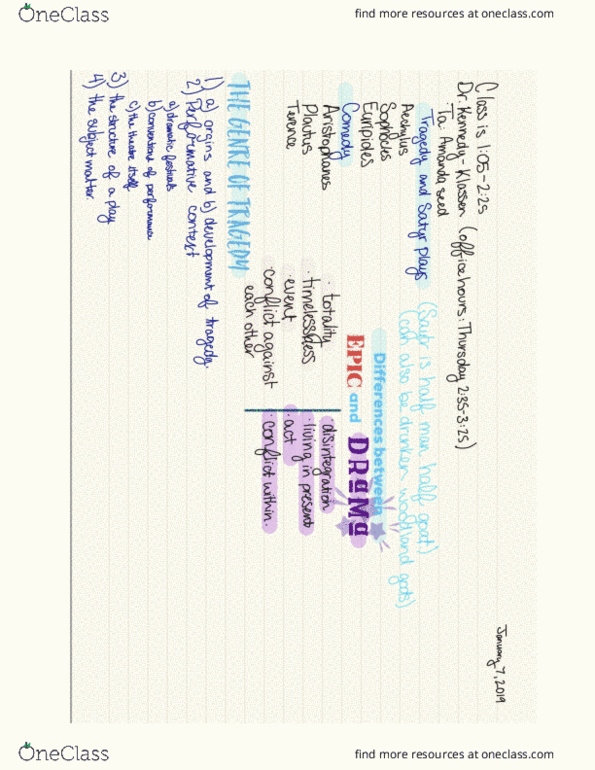 OneClass
find more resources at oneclass.com
January 7, 2019
Class is 1:05-2:25
Dr. Kennedy-Klassen (office hours: Thursday 2:35-3:25)
Ta: Amanda seed
Tragedy and Satyr Plays (Satyr is half man half goat)
(can also be drunken woodland gods)
Aeshylus
Sophocles
Euripides
Comedy
Aristophanes
Plautus
Terence
Differences between
EPIC and DRaMa
· totality · disintegration
· timelessness · living in present
· event · act
· conflict against each other · conflict within
THE GENRE OF TRAGEDY
1) a) orgins and b) development of tragedy.
2) Performative context
a) dramatic festivals
b) conventions of performance
c) the theatre itself
3) the structure of a play
4) the subject matter.
OneClass
find more resources at oneclass.com